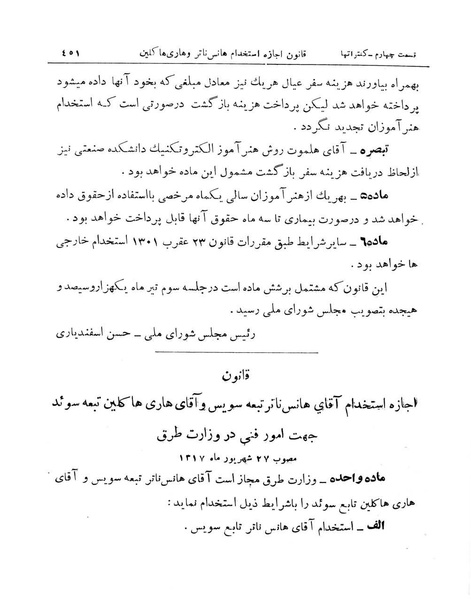 قسمت چهارم ـ کنتراتها قانون اجازه استخدام هانس ناتر وهاری هاکلین ٤٥١
بهمراه بیاورند هزینه سفر عیال هریك نیز معادل مبلغی که بخود آنها داده میشود
پرداخته خواهد شد لیکن پرداخت هزینه بازگشت درصورتی است که استخدام
هنرآموزان تجدید نگردد .
تبصره ـ آقای هلموت روش هنرآموز الکتروتکنیك دانشکده صنعتی نیز
ازلحاظ دریافت هزینه سفر بازگشت مشمول این ماده خواهد بود .
ماده٥ـ بهریك ازهنرآموزان سالی یکماه مرخصی بااستفاده ازحقوق داده
خواهد شد و درصورت بیماری تا سه ماه حقوق آنها قابل پرداخت خواهد بود .
ماده٦ ـ سایرشرایط طبق مقررات قانون ٢٣ عقرب ١٣٠١ استخدام خارجی
ها خواهد بود .
این قانون که مشتمل برشش ماده است درجلسه سوم تیر ماه یکهزاروسیصد و
هیجده بتصویب مجلس شورای ملی رسید .
رئیس مجلس شورای ملی ـ حسن اسفندیاری
قانون
اجازه استخدام آقای هانس ناتر تبعه سویس وآقای هاری هاکلین تبعه سوئد
جهت امور فنی در وزارت طرق
مصوب ٢٧ شهریور ماه ١٣١٧
ماده واحده ـ وزارت طرق مجاز است آقای هانس ناتر تبعه سویس و آقای
هاری هاکلین تابع سوئد را باشرایط ذیل استخدام نماید :
الف ـ استخدام آقای هانس ناتر تابع سویس .